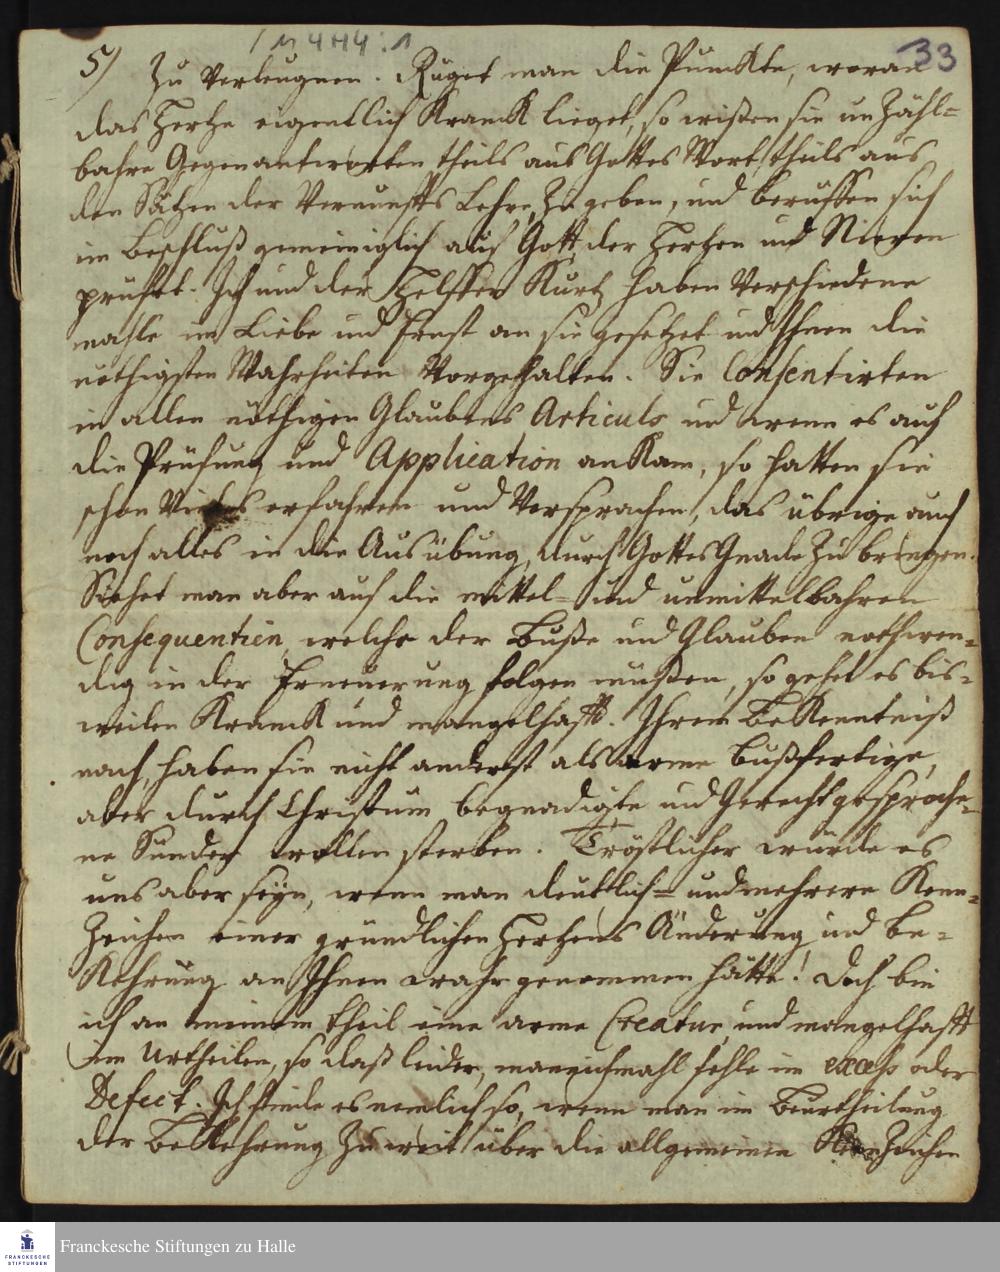 1 M 4 H 4 : 1
33
5) Zu Verleugnen. Rüget man die Punckte, woran
das Hertze eigentlich Kranck lieget, so wißen sie unZähl-
bahre Gegenantworten theils aus Gottes Wort, theils aus
den Sätzen der Vernunffts Lehre, Zu geben, und beruffen sich
im Beschluß gemeiniglich auf Gott, der Hertzen und Nieren
prüfet. Ich und der Helffer Kurtz haben Verschiedene
mahle in Liebe und Ernst an sie gesetzet und Ihnen die
nöthigsten Wahrheiten Vorgehalten. Sie Consentirten
in allen nöthigen Glaubens Articuls und wenn es auf
die Prüfung und Application anKam, so hatten sie
schon Vieles erfahren und Versprachen, das übrige auch
noch alles in die Ausübung, durch Gottes Gnade Zu bringen.
Siehet man aber auf die mittel- und unmittelbahren
Consequentien, welche der Buße und Glauben nothwen-
dig in der Erneuerung folgen müßen, so gehet es bis-
weilen Kranck und mangelhafft. Ihrem BeKenntniß
nach, haben sie nicht anderst als arme bußfertige,
aber durch Christum begnadigte und Gerechtgesproche-
ne Sünder wollen sterben. Tröstlicher würde es
uns aber seyn, wenn man deuttlich- und mehrere Kenn-
Zeichen einer gründlichen Hertzens Änderung und Be-
Kehrung an Ihnen wahrgenommen hätte! Doch bin
ich an meinem theil eine arme Creatur, und mangelhafft
im Urtheilen, so daß leider, mannichmahl fehle im excess oder
Defect. Ich finde es nemlich so, wenn man in Beurtheilung
der BeKehrung Zu weit über die allgemeinen KennZeichen
FRANCKESCHE
STIFTUNGEN
Franckesche Stiftungen zu Halle